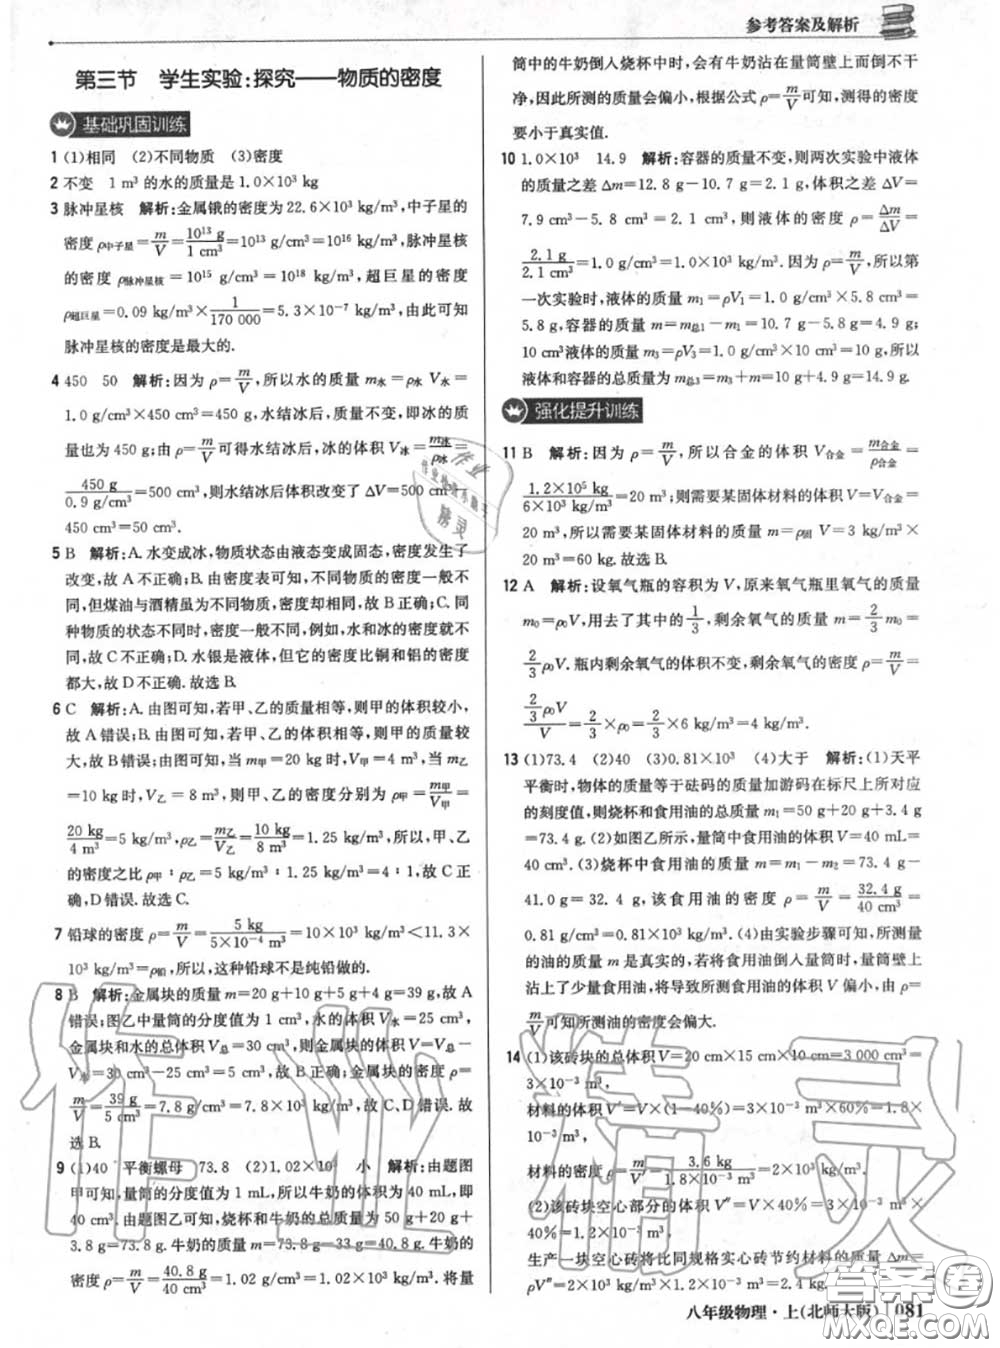 参考答案及解析
第三节 学生实验:探究——物质的密度
基础巩固训练
1 (1)相同 (2)不同物质 (3)密度
2 不变 1 m³的水的质量是1.0×10³ kg
3 脉冲星核 解析:金属锇的密度为22.6×10³ kg/m³,中子星的
密度ρ中子星=m/V=10¹³ g/1 cm³=10¹³ g/cm³=10¹⁶ kg/m³,脉冲星核
的密度 ρ脉冲星核=10¹⁵ g/cm³=10¹⁸ kg/m³,超巨星的密度
ρ超巨星=0.09 kg/m³×1/170 000=5.3×10⁻⁷ kg/m³,由此可知
脉冲星核的密度是最大的.
4 450 50 解析:因为ρ=m/V,所以水的质量 m水=ρ水 V水=
1.0 g/cm³×450 cm³=450 g;水结冰后,质量不变,即冰的质
量为450 g;由ρ=m/V可得水结冰后,冰的体积V冰=m冰/ρ冰=
450 g/0.9 g/cm³=500 cm³,则水结冰后体积改变了ΔV=500 cm³-
450 cm³=50 cm³.
5 B 解析:A.水变成冰,物质状态由液态变成固态,密度发生了
改变,故A不正确;B.由密度表可知,物质的密度一般不同,
但煤油与酒精虽为不同的物质,密度却相同,故B正确;C.同
种物质的状态不同时,密度一般不同,例如,水和冰的密度不
同,故C不正确;D.水银是液体,但它的密度比铜和铝的密度
都大,故D不正确.故选B.
6 C 解析:A.由图可知,若甲、乙的质量相等,则甲的体积较小,
故A错误;B.由图可知,若甲、乙的体积相等,则甲的质量较
大,故B错误;由图可知,当m甲=20 kg时,V甲=4 m³,当m乙
=10 kg时,V乙=8 m³,则甲、乙的密度分别为 ρ甲=m甲/V甲=
20 kg/4 m³=5 kg/m³,ρ乙=m乙/V乙=10 kg/8 m³=1.25 kg/m³,所以,甲、乙
的密度之比为ρ甲∶ρ乙=5 kg/m³∶1.25 kg/m³=4∶1,故C
正确,D错误.故选C.
7 铅球的密度ρ=m/V=5 kg/5×10⁻⁴ m³=10×10³ kg/m³<11.3×
10³ kg/m³=ρ铅,所以,这种铅球不是纯铅做的.
8 B 解析:金属块的质量m=20 g+10 g+5 g+4 g=39 g,故A
错误;图乙中量筒的分度值为1 cm³,水的体积V水=25 cm³,
金属块和水的总体积V总=30 cm³,则金属块的体积V=V总-
V水=30 cm³-25 cm³=5 cm³,故B正确;金属块的密度ρ=
m/V=39 g/5 cm³=7.8 g/cm³=7.8×10³ kg/m³,故C,D错误.故
选B.
9 (1)40 平衡螺母 73.8 (2)1.02×10³ 小 解析:由题图
甲可知,量筒的分度值为1 mL,所以牛奶的体积为40 mL,即
40 cm³.由题图乙可知,烧杯和牛奶的总质量为50 g+20 g+
3.8 g=73.8 g.牛奶的质量m=73.8 g-33 g=40.8 g.牛奶的
密度 ρ=m/V=40.8 g/40 cm³=1.02 g/cm³=1.02×10³ kg/m³.将量
筒中的牛奶倒入烧杯中时,会有牛奶沾在量筒壁上而倒不干
净,因此所测的质量会偏小,根据公式ρ=m/V可知,测得的密度
要小于真实值.
10 1.0×10³ 14.9 解析:容器的质量不变,则两次实验中液体
的质量之差 Δm=12.8 g-10.7 g=2.1 g,体积之差 ΔV=
7.9 cm³-5.8 cm³=2.1 cm³,则液体的密度 ρ=Δm/ΔV=
2.1 g/2.1 cm³=1.0 g/cm³=1.0×10³ kg/m³.因为ρ=m/V,所以第
一次实验时,液体的质量m₁=ρV₁=1.0 g/cm³×5.8 cm³=
5.8 g,容器的质量 m=m总1-m₁=10.7 g-5.8 g=4.9 g;
10 cm³液体的质量m₃=ρV₃=1.0 g/cm³×10 cm³=10 g,所以
液体和容器的总质量为m总3=m₃+m=10 g+4.9 g=14.9 g.
强化提升训练
11 B 解析:因为ρ=m/V,所以合金的体积V合金=m合金/ρ合金=
1.2×10⁵ kg/6×10³ kg/m³=20 m³;则需要某固体材料的体积V=V合金=
20 m³,所以需要某固体材料的质量 m=ρ固 V=3 kg/m³×
20 m³=60 kg.故选B.
12 A 解析:设氧气瓶的容积为V,原来氧气瓶里氧气的质量
m₀=ρ₀V,用去了质量的1/3,剩余氧气的质量m=2/3 m₀=
2/3 ρ₀V.瓶内剩余氧气的体积不变,剩余氧气的密度ρ=m/V=
2/3 ρ₀V/V=2/3×ρ₀=2/3×6 kg/m³=4 kg/m³.
13 (1)73.4 (2)40 (3)0.81×10³ (4)大于 解析:(1)天平
平衡时,物体的质量等于砝码的质量加游码在标尺上所对应
的刻度值,则烧杯和食用油的总质量m₁=50 g+20 g+3.4 g
=73.4 g.(2)如图乙所示,量筒中食用油的体积V=40 mL=
40 cm³.(3)烧杯中食用油的质量m=m₁-m₂=73.4 g-
41 g=32.4 g,该食用油的密度 ρ=m/V=32.4 g/40 cm³=
0.81 g/cm³=0.81×10³ kg/m³.(4)由实验步骤可知,所测量
的油的质量m是真实的,将食用油倒入量筒时,量筒壁上
沾上了少量食用油,将导致所测食用油的体积V偏小,由ρ=
m/V可知所测油的密度会偏大.
14 (1)该砖块的总体积V=20 cm×15 cm×10 cm=3 000 cm³=
3×10⁻³ m³,
材料的体积V′=V×(1-40%)=3×10⁻³ m³×60%=1.8×
10⁻³ m³,
材料的密度ρ=m/V′=3.6 kg/1.8×10⁻³ m³=2×10³ kg/m³.
(2)该砖块空心部分的体积V″=V×40%=3×10⁻³ m³×
40%=1.2×10⁻³ m³,
生产一块空心砖将比同规格实心砖节约材料的质量 Δm=
ρV″=2×10³ kg/m³×1.2×10⁻³ m³=2.4 kg.
八年级物理·上(北师大版) 081
作业精灵
答案圈